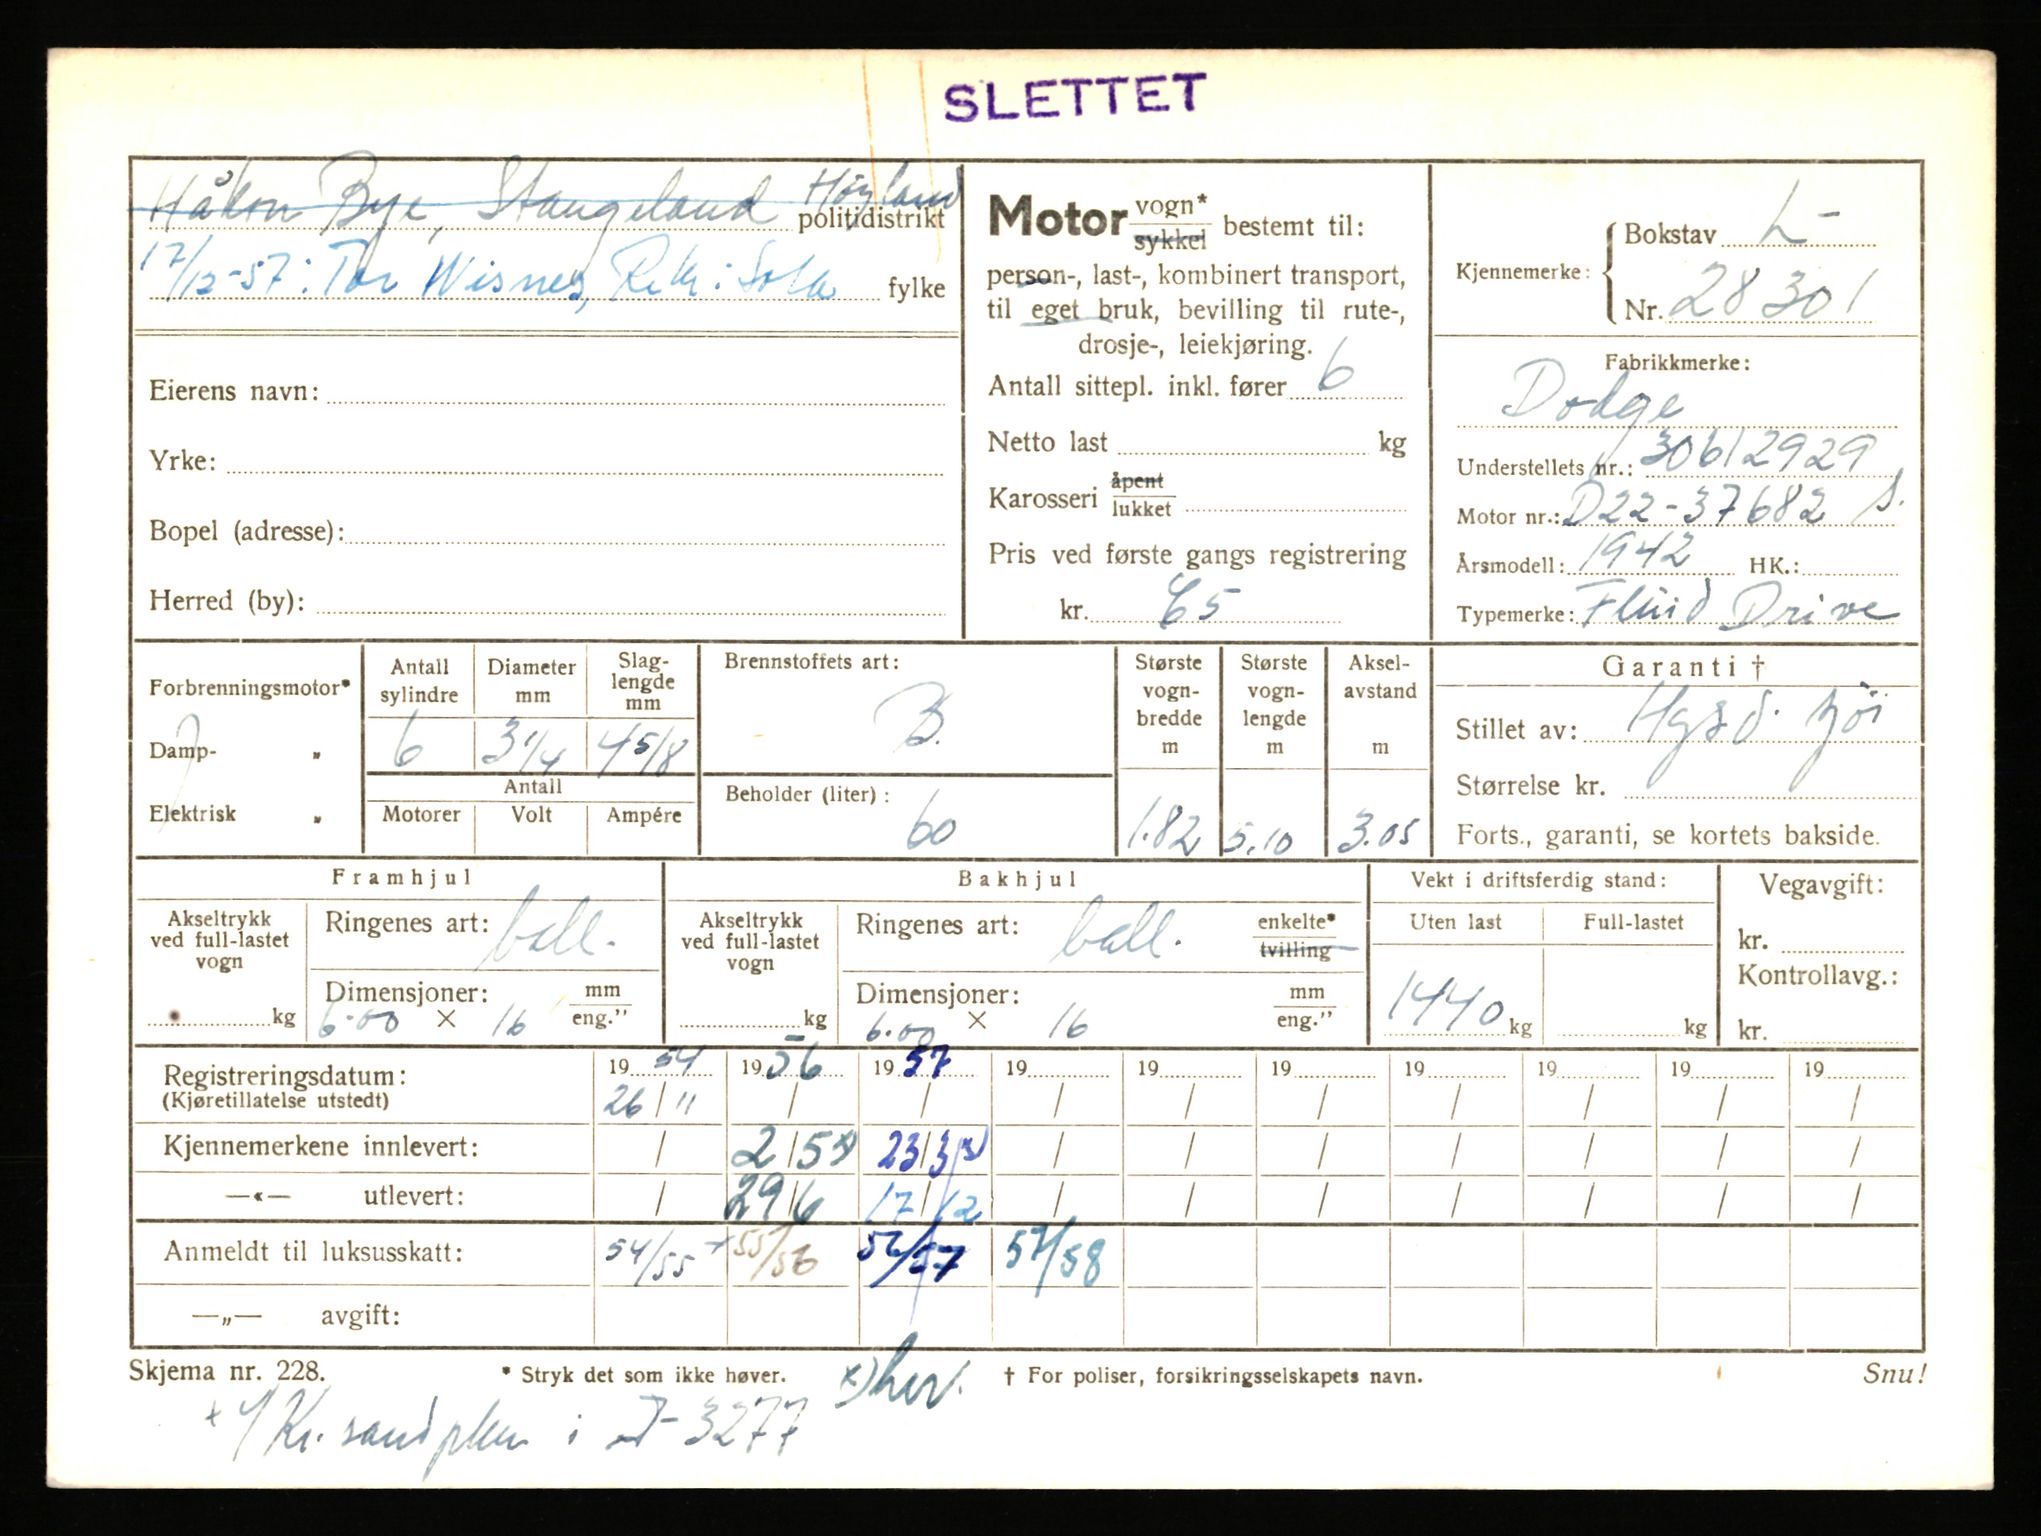 SLETTET
Håkon Bye, Stangeland Høyland politidistrikt
17/12-57: Tor Wisnes, Rektr: Sola fylke
Eierens navn:
Yrke:
Bopel (adresse):
Herred (by):
Motor vogn*
sykkel bestemt til:
person-, last-, kombinert transport,
til eget bruk, bevilling til rute-,
drosje-, leiekjøring.
Antall sittepl. inkl. fører 6
Netto last kg
Karosseri åpent
lukket
Pris ved første gangs registrering
kr. 65
Kjennemerke: Bokstav L-
Nr. 28301
Fabrikkmerke:
Dodge
Understellets nr.: 30612929
Motor nr.: D22-37682 S.
Årsmodell: 1942 HK.:
Typemerke: Fluid Drive
Forbrenningsmotor*
Damp- „
Elektrisk „
Antall sylindre 6
Diameter mm 3 1/4
Slag-lengde mm 4 5/8
Antall
Motorer Volt Ampére
Brennstoffets art:
B.
Beholder (liter):
60
Største vogn-bredde m 1.82
Største vogn-lengde m 5.10
Aksel-avstand m 3.05
Garanti †
Stillet av:
Størrelse kr.
Forts., garanti, se kortets bakside.
Framhjul
Akseltrykk ved full-lastet vogn kg
Ringenes art: ball.
Dimensjoner: mm
eng."
6.00 × 16
Bakhjul
Akseltrykk ved full-lastet vogn kg
Ringenes art: ball. enkelte*
tvilling
Dimensjoner: mm
eng."
6.00 × 16
Vekt i driftsferdig stand:
Uten last Full-lastet
1440 kg kg
Vegavgift:
kr.
Kontrollavg.:
kr.
Registreringsdatum: 19 54 19 56 19 57 19 19 19 19 19 19 19
(Kjøretillatelse utstedt) 26/11 / / / / / / / / /
Kjennemerkene innlevert: / 2/5 x) 23/3 x) / / / / / / /
—«— utlevert: / 29/6 17/12 / / / / / / /
Anmeldt til luksusskatt: 54/55 + 55/56 56/57 57/58
—„— avgift:
Skjema nr. 228. * Stryk det som ikke høver. x) hvr. † For poliser, forsikringsselskapets navn. Snu!
+ i 3277